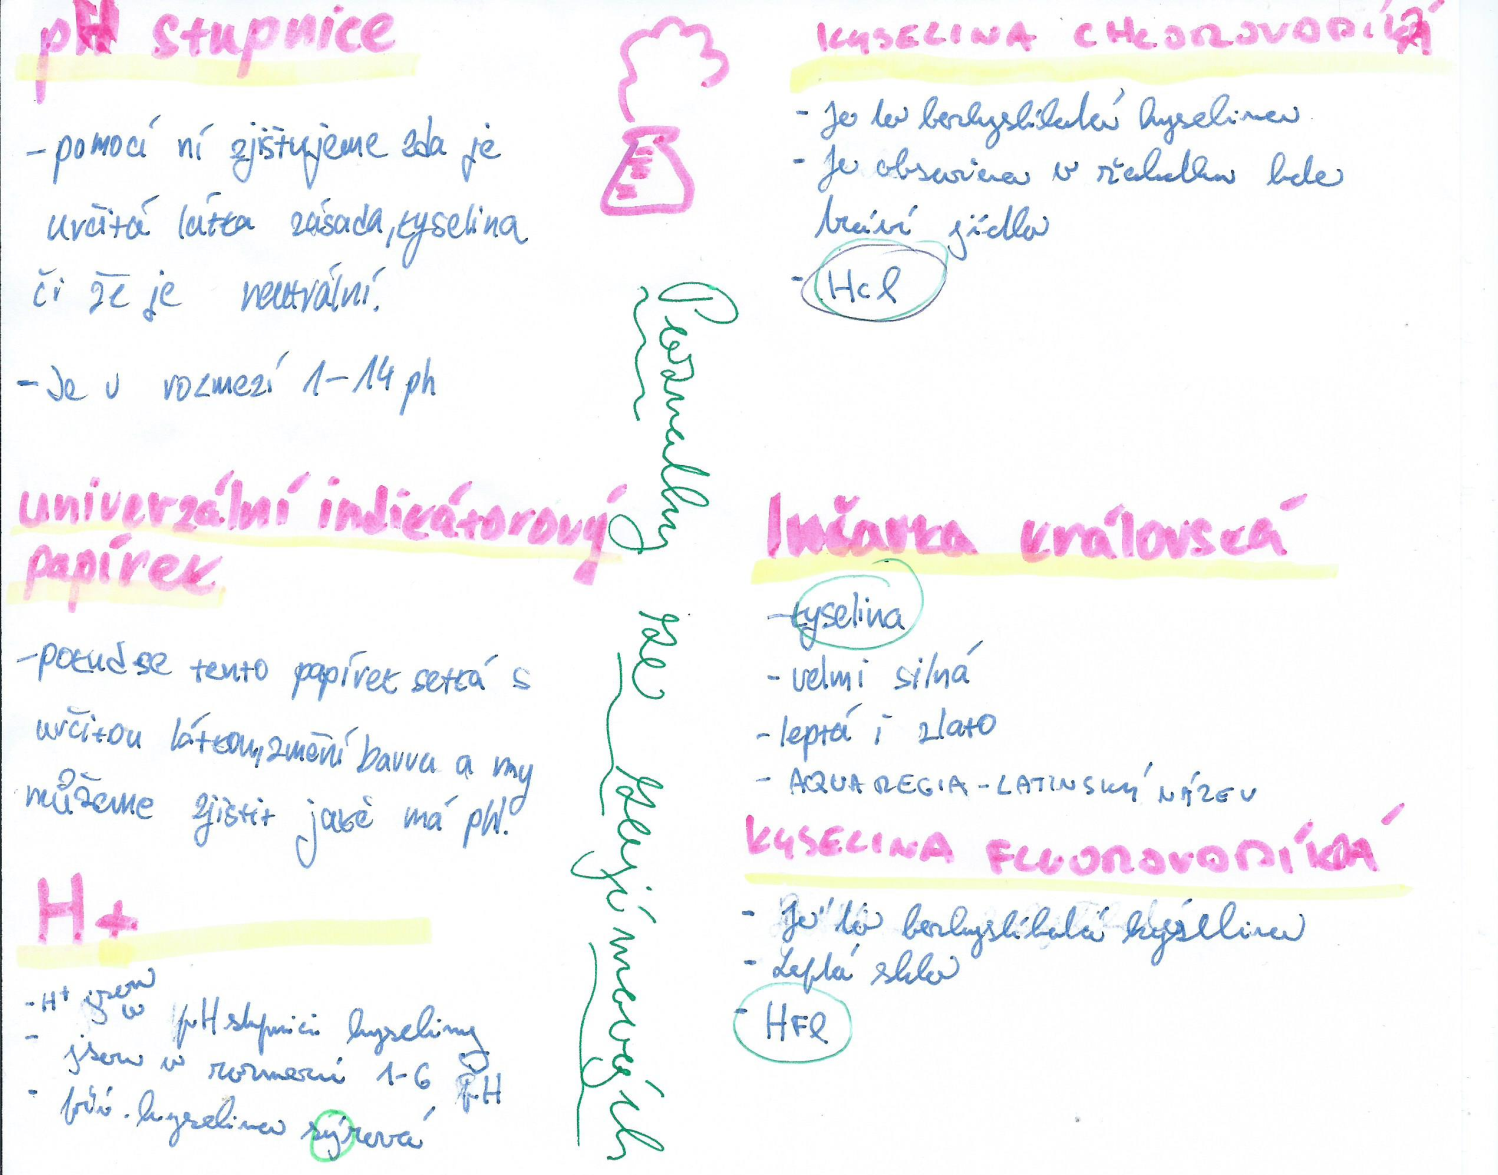 pH stupnice
- pomocí ní zjištujeme zda je
určitá látka zásada, kyselina
či že je neutrální.
- Je v rozmezí 1-14 ph
univerzální indikátorový
papírek
- pokud se tento papírek setká s
určitou látkou, změní barvu a my
můžeme zjistit jaké má pH.
H+
- H+ jsou
v pH stupnici kyseliny
- jsou v rozmezí 1-6 pH
- př. kyselina sýrová
Poznatky
ze
Zajímavých
KYSELINA CHLOROVODÍKÁ
- Je to bezkyslíkatá kyselina
- Je obsažena v žaludku kde
tráví jídlo
- Hcl
lučavka královská
- kyselina
- velmi silná
- leptá i zlato
- AQUA REGIA - LATINSKÝ NÁZEV
KYSELINA FLUOROVODÍKÁ
- Je to bezkyslíkatá kyselina
- Leptá sklo
- HFl